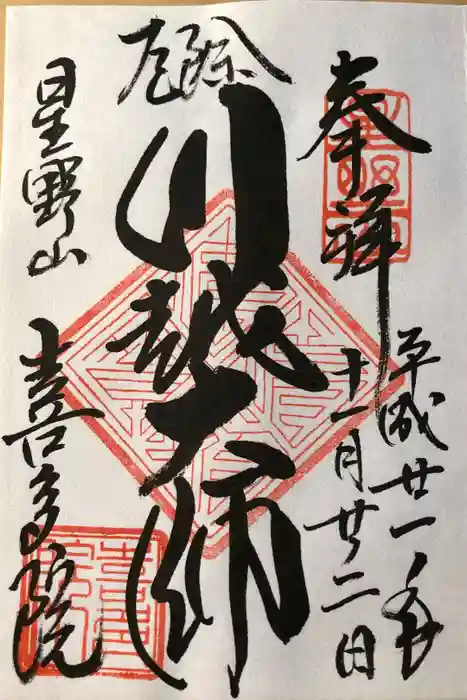 奉拝
平成廿一年
十一月廿二日
厄除
川越大師
星野山
喜多院